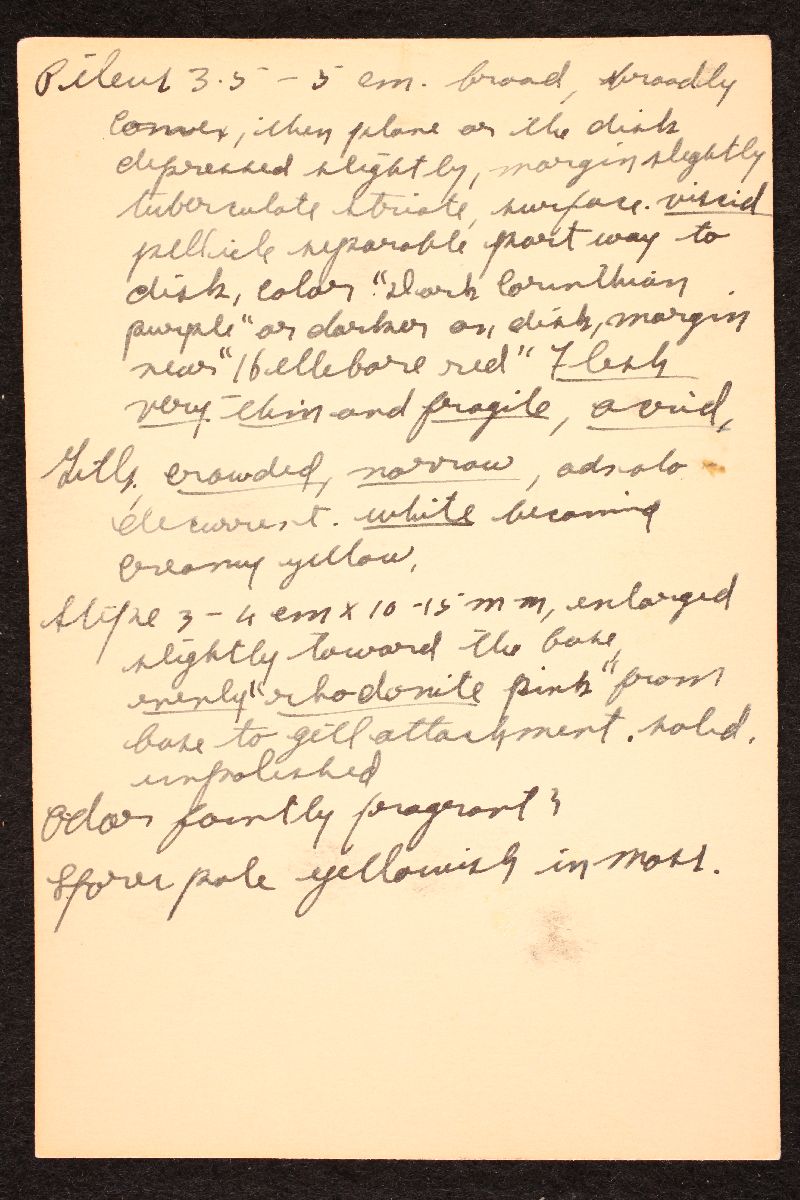 Pileus 3.5 - 5 cm. broad, broadly
convex, then plane or the disk
depressed slightly, margin slightly
tuberculate striate, surface. viscid
pellicle separable part way to
disk, color "dark Corinthian
purple" or darker on disk, margin
near "Hellebore red" Flesh
very thin and fragile, acrid,
Gills, crowded, narrow, adnato
decurrent. white becoming
creamy yellow,
Stipe 3 - 4 cm x 10 -15 mm, enlarged
slightly toward the base,
evenly "rhodonite pink" from
base to gill attachment. solid.
unpolished
Odor faintly fragrant?
Spores pale yellowish in mass.